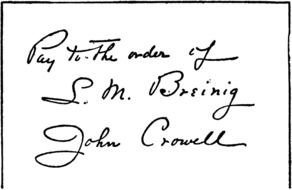 Pay to the order of
L. M. Breinig
John Crowell